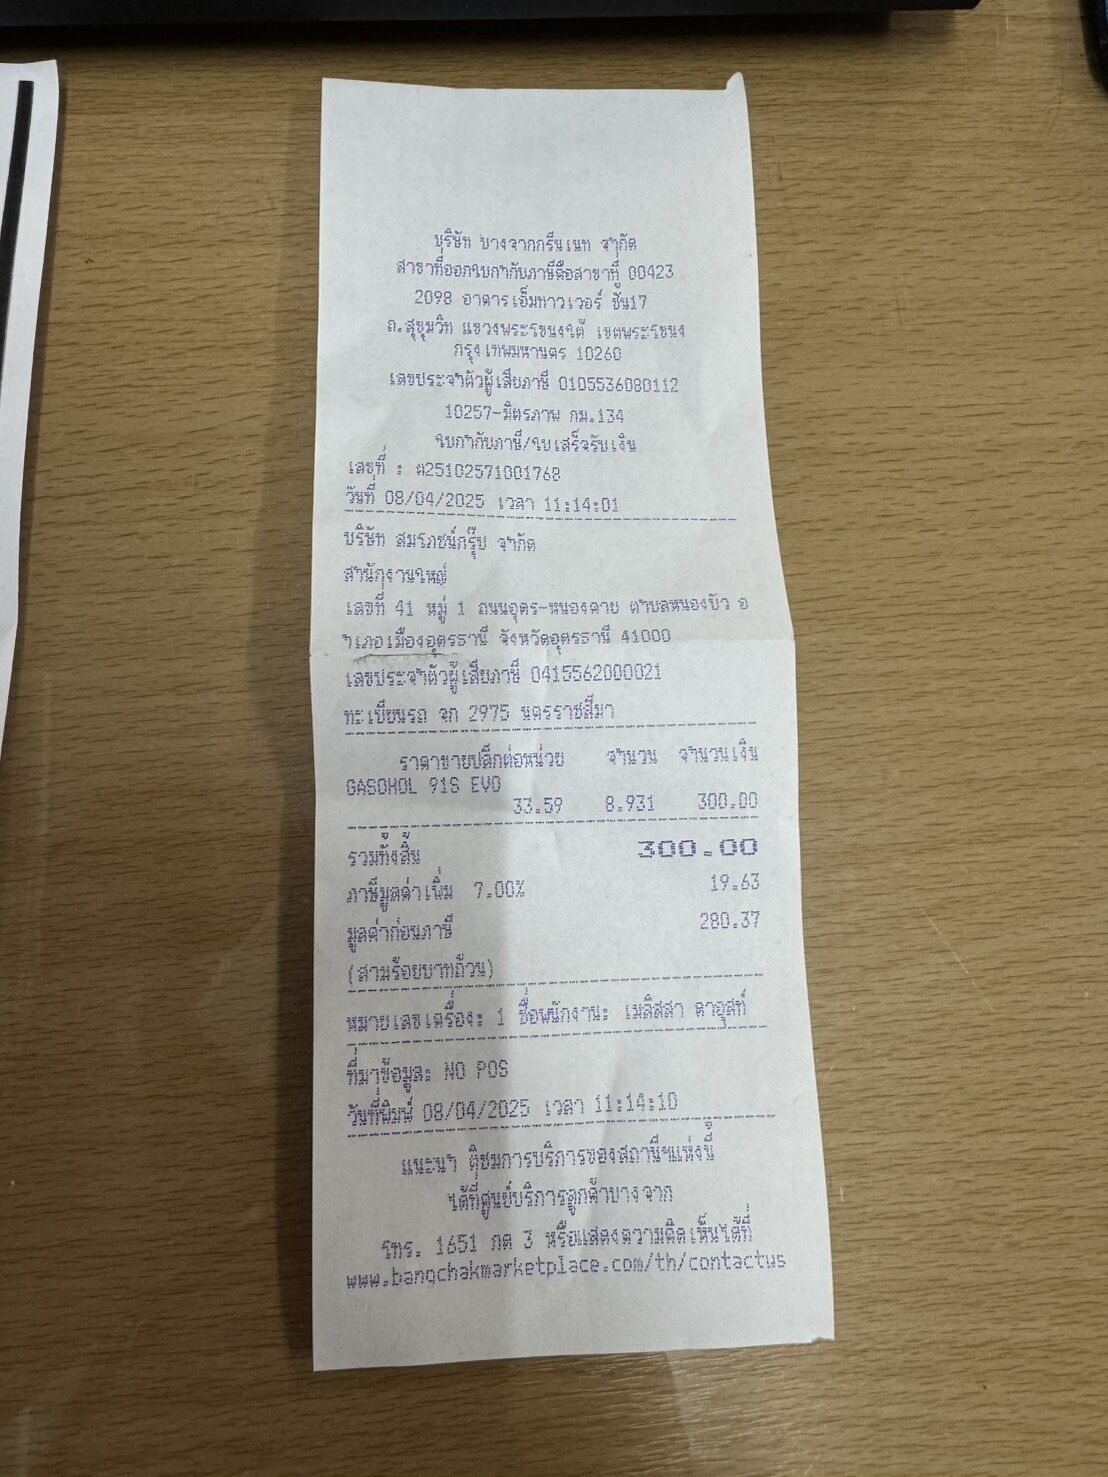 บริษัท บางจากกรีนเนท จำกัด
สาขาที่ออกใบกำกับภาษีคือสาขาที่ 00423
2098 อาคารเอ็มทาวเวอร์ ชั้น17
ถ.สุขุมวิท แขวงพระโขนงใต้ เขตพระโขนง
กรุงเทพมหานคร 10260
เลขประจำตัวผู้เสียภาษี 0105536080112
10257-มิตรภาพ กม.134
ใบกำกับภาษี/ใบเสร็จรับเงิน
เลขที่ : ต25102571001768
วันที่ 08/04/2025 เวลา 11:14:01
บริษัท สมโภชน์กรุ๊ป จำกัด
สำนักงานใหญ่
เลขที่ 41 หมู่ 1 ถนนอุดร-หนองคาย ตำบลหนองบัว อ
ำเภอเมืองอุดรธานี จังหวัดอุดรธานี 41000
เลขประจำตัวผู้เสียภาษี 0415562000021
ทะเบียนรถ จก 2975 นครราชสีมา
ราคาขายปลีกต่อหน่วย จำนวน จำนวนเงิน
GASOHOL 91S EVO
33.59 8.931 300.00
รวมทั้งสิ้น 300.00
ภาษีมูลค่าเพิ่ม 7.00% 19.63
มูลค่าก่อนภาษี 280.37
(สามร้อยบาทถ้วน)
หมายเลขเครื่อง: 1 ชื่อพนักงาน: เมลิสสา ดาอุสท์
ที่มาข้อมูล: NO POS
วันที่พิมพ์ 08/04/2025 เวลา 11:14:10
แนะนำ ติชมการบริการของสถานีฯแห่งนี้
ได้ที่ศูนย์บริการลูกค้าบางจาก
โทร. 1651 กด 3 หรือแสดงความคิดเห็นได้ที่
www.bangchakmarketplace.com/th/contactus